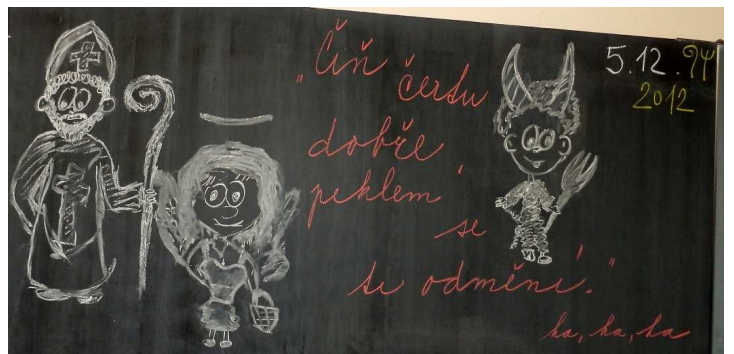 „Čiň čertu
dobře,
peklem
se
ti odmění!"
ha, ha, ha
5.12.
2012